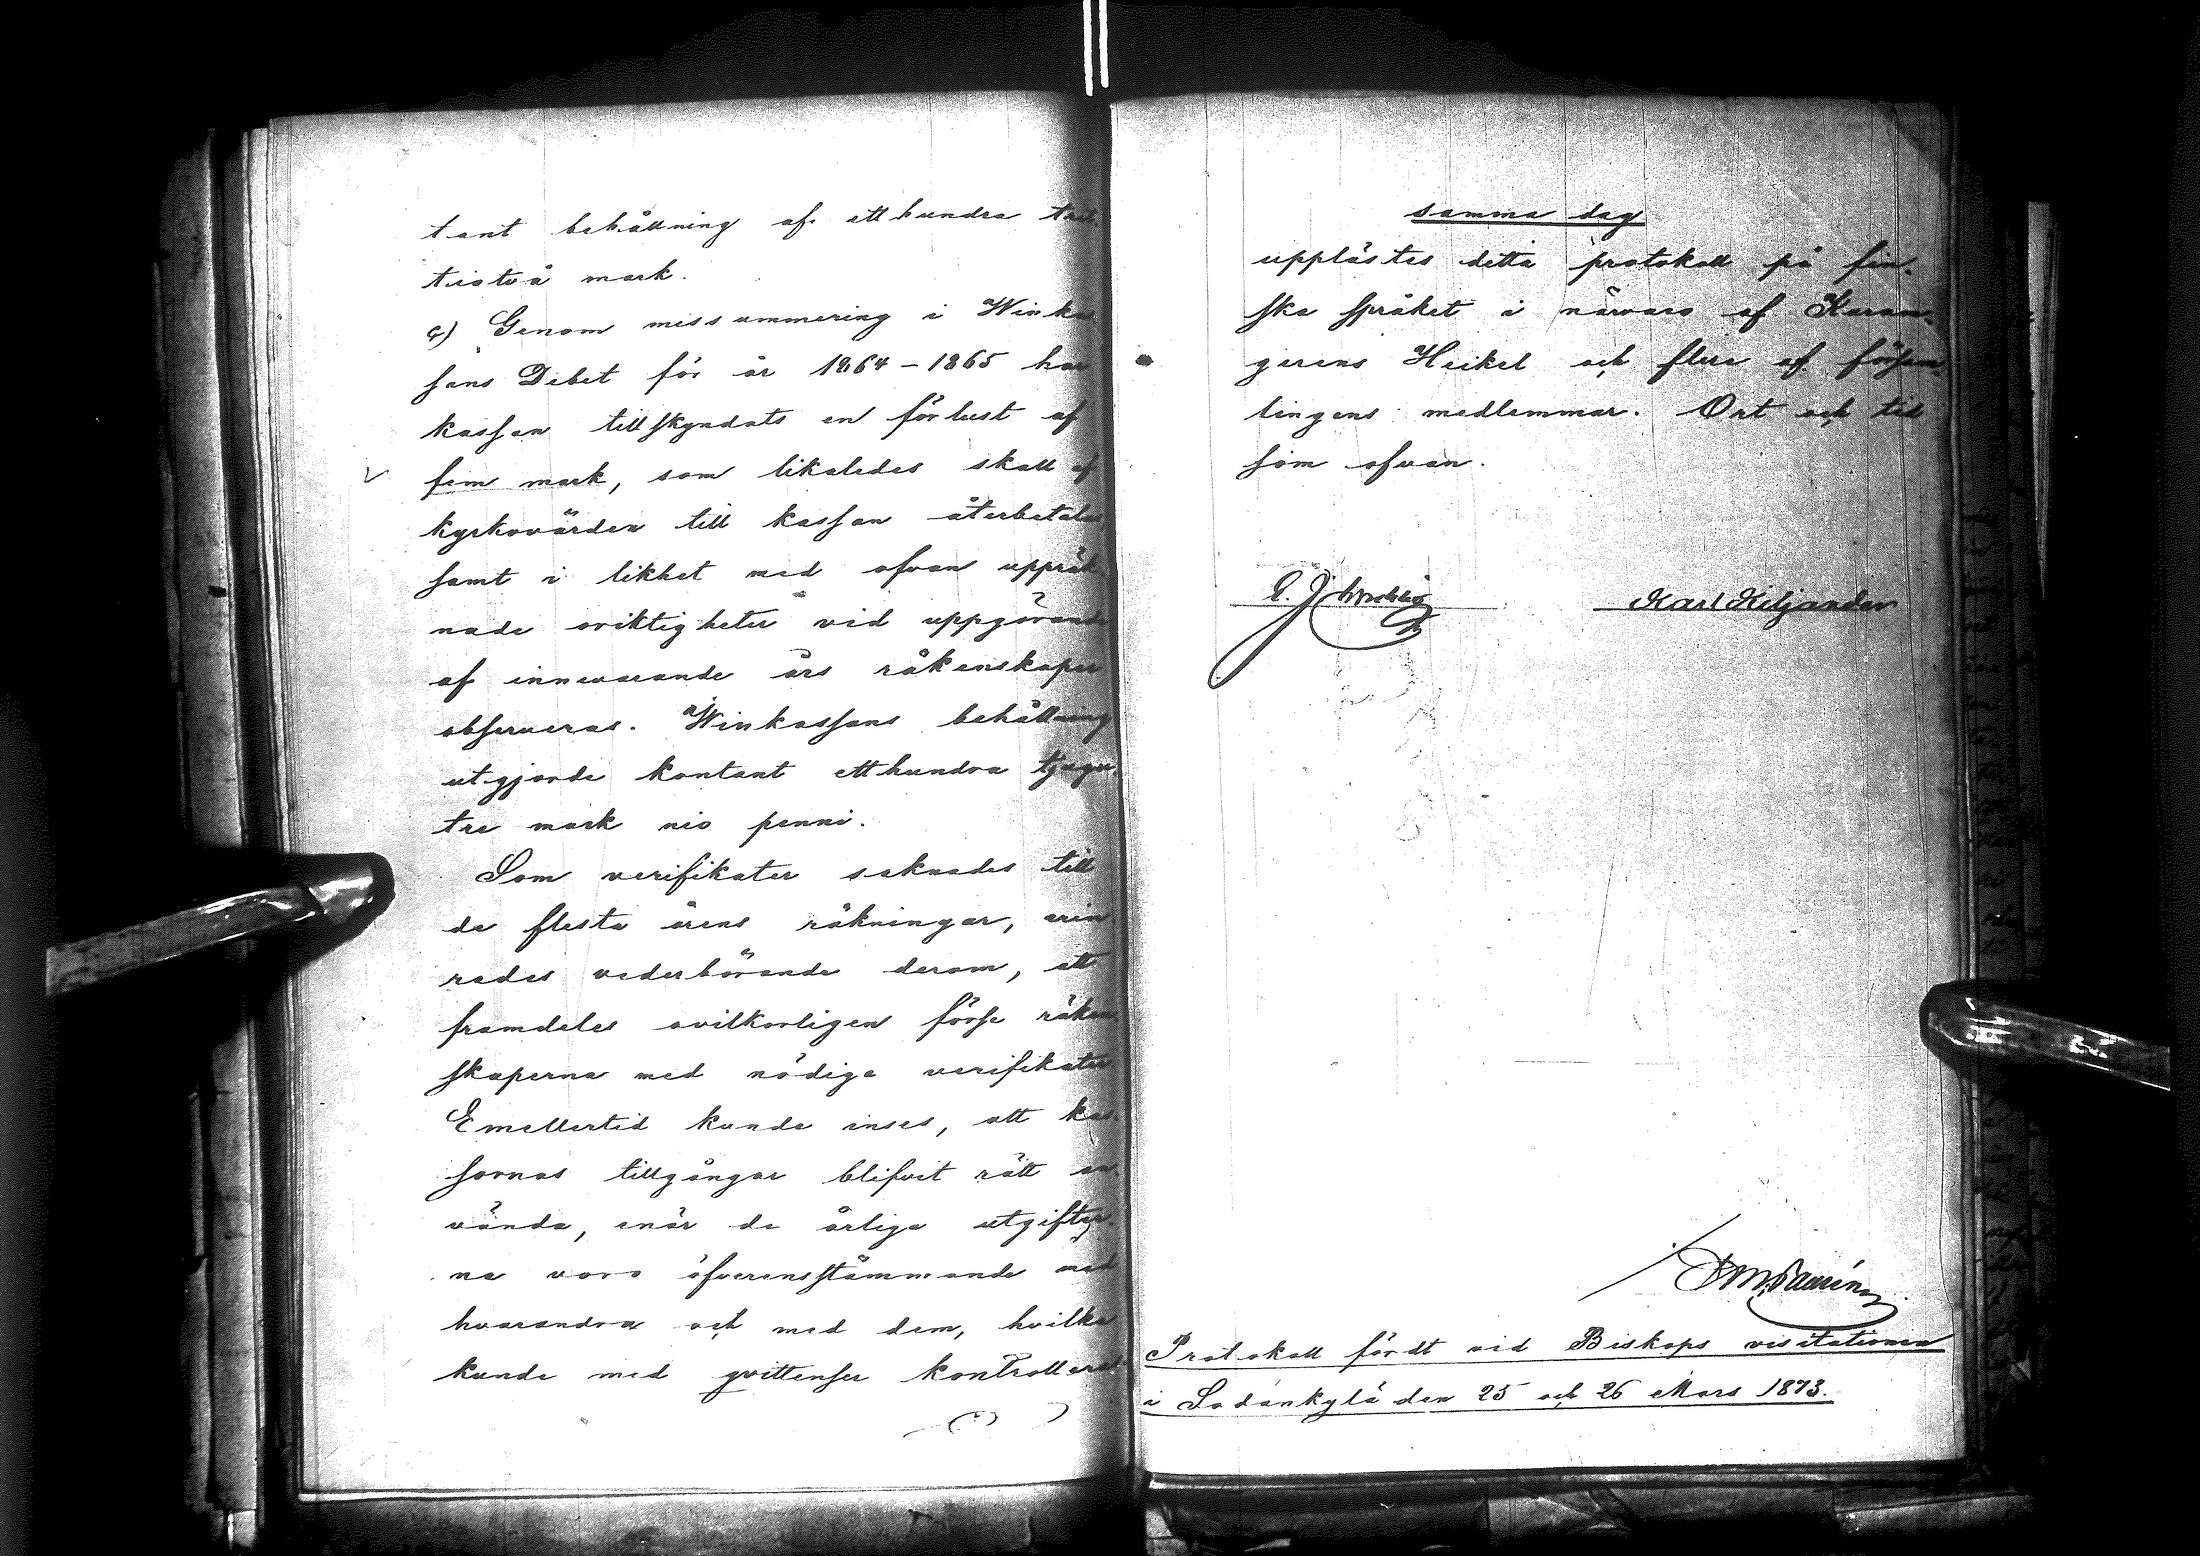 tant behållning af etthundra tret-
tiotvå mark.
c) Genom missummering i Winkas
sans Debet för år 1864-1865 har
kassan tillskyndats en förlust af
fem mark, som likaledes skall af
kyrkovärden till kassan återbetalas
samt i likhet med ofvan uppräk-
nade oriktigheter vid uppgörande
af innevarande års räkenskaper
observeras. Winkassans behållning
utgjorde kontant etthundra tjugu-
tre mark nio penni.
Som verifikater saknades till
de flesta årens räkningar, erin
rades vederbörande derom, att
framdeles ovilkorligen förse räken
skaperna med nödiga verifikater
Emellertid kunde inses, att kas-
sornas tillgångar blifvit rätt an-
vända, enär de årliga utgifter-
na voro öfverensstämmande med
hvarandra och med dem, hvilka
kunde med qvittenser kontrolleras
samma dag
upplästes detta protokoll på fin-
ska språket i närvaro af Karan-
gerens Heikel och flere af försam-
lingens medlemmar. Ort och tid
som ofvan.
Karl Kiljander
Protokoll fördt vid Biskops visitationen
i Sodankylä den 25 och 26 Mars 1873.